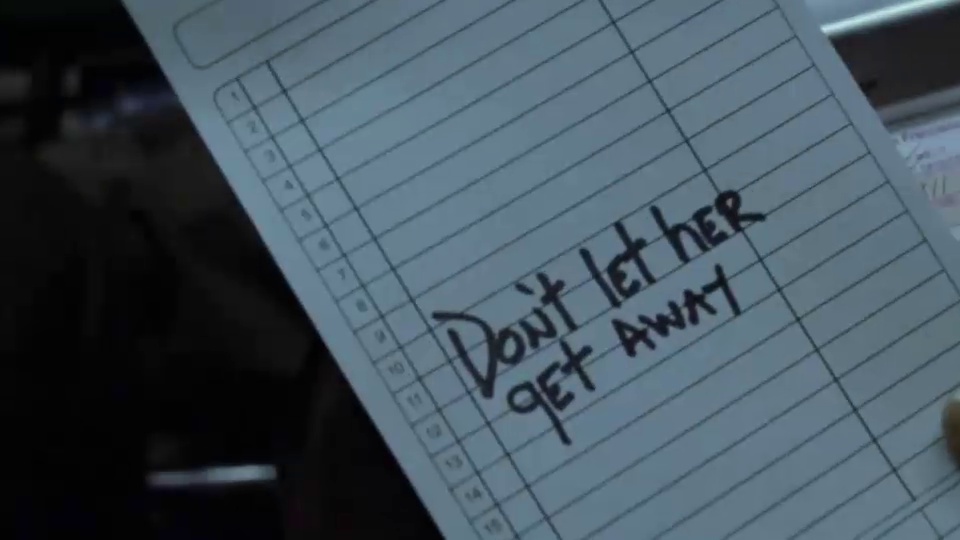 1
2
3
4
5
6
7
8
9
10
11
12
13
14
15
DON'T LET HER
GET AWAY